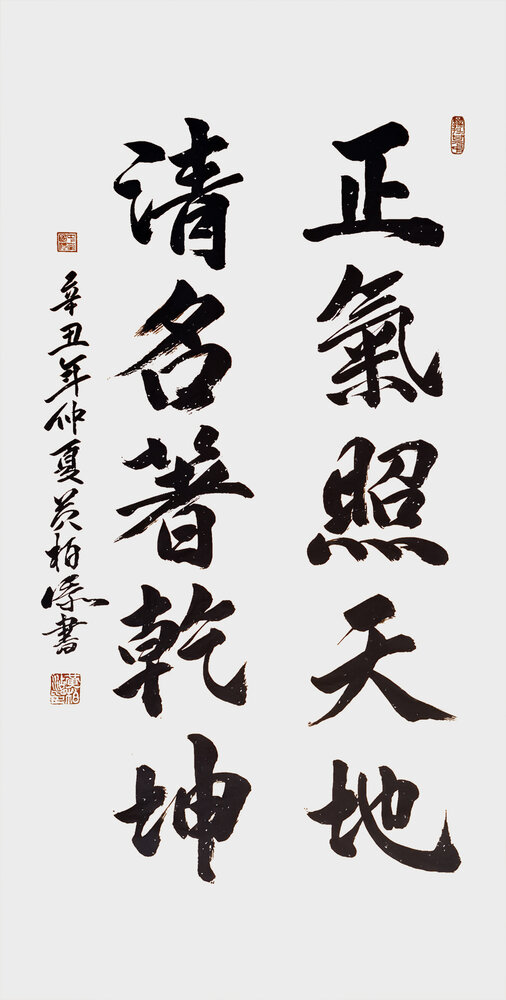 正氣照天地
清名著乾坤
辛丑年仲夏黃柏添書